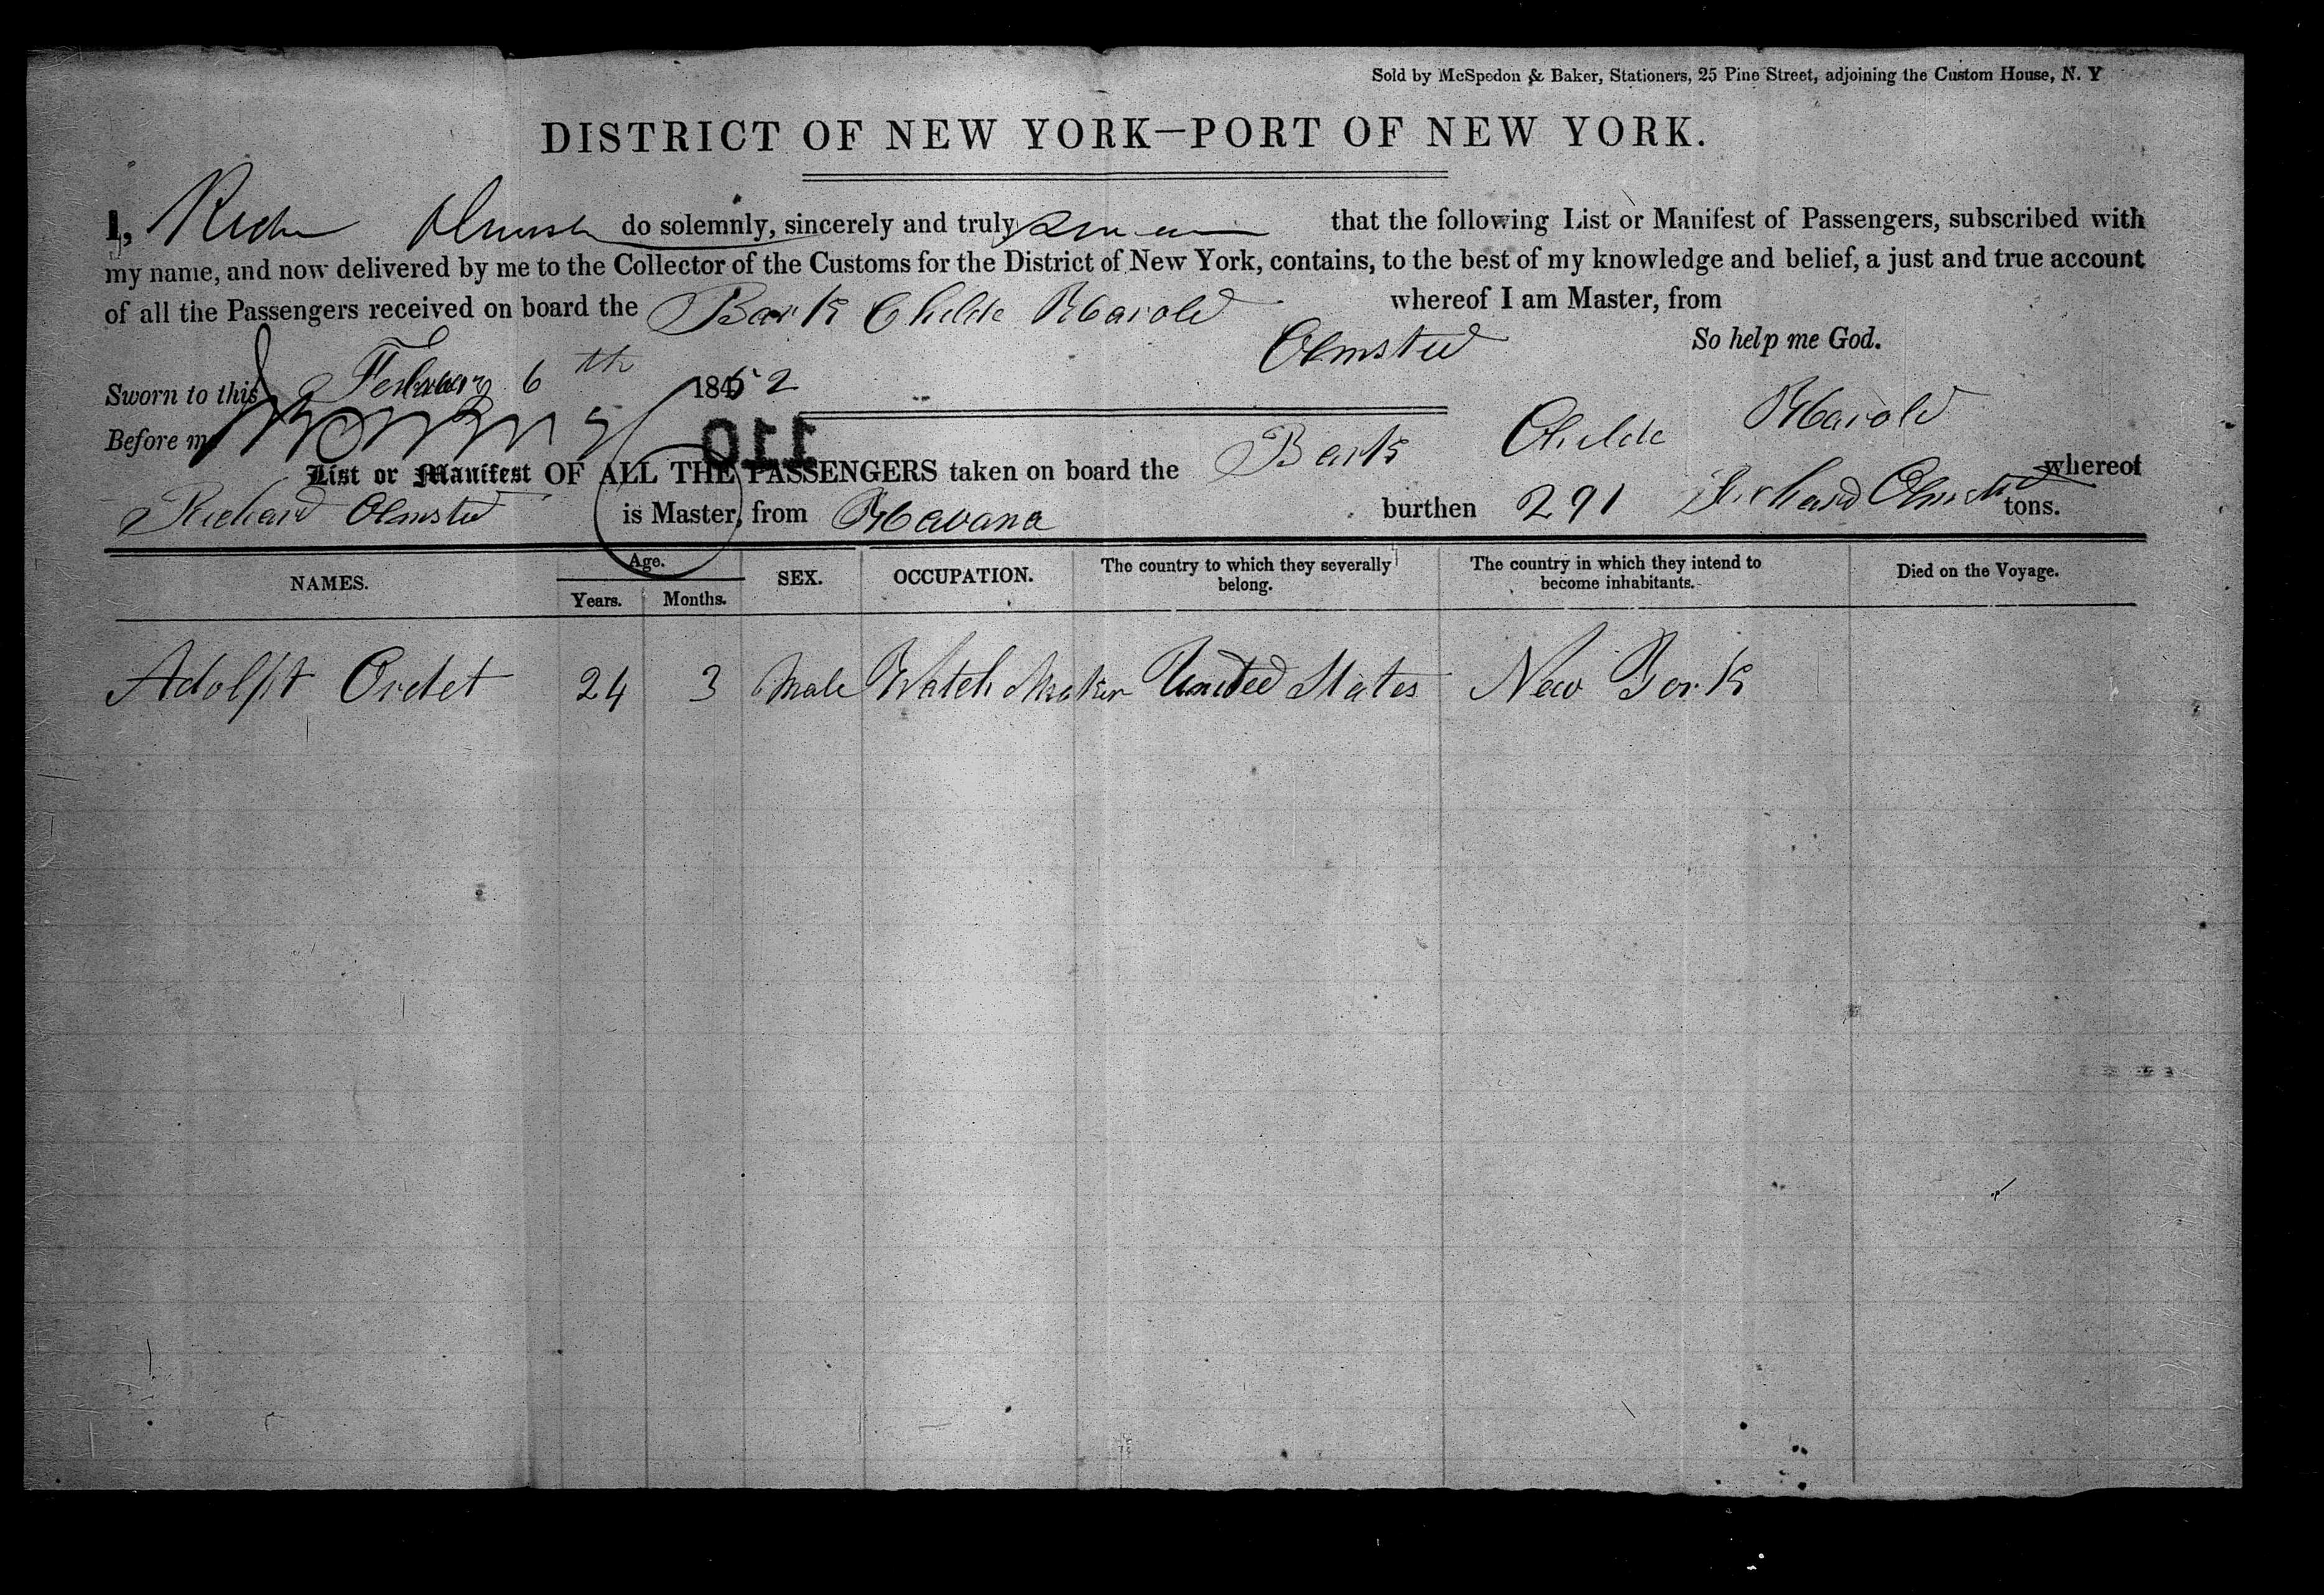 Sold by McSpedon & Baker, Stationers, 25 Pine Street, adjoining the Custom House, N. Y
DISTRICT OF NEW YORK—PORT OF NEW YORK.
I, Olmsted do solemnly, sincerely and truly that the following List or Manifest of Passengers, subscribed with
my name, and now delivered by me to the Collector of the Customs for the District of New York, contains, to the best of my knowledge and belief, a just and true account
of all the Passengers received on board the Bark Childe Harold whereof I am Master, from
Olmsted So help me God.
Sworn to this February 6th 1852
Before me
110
List or Manifest OF ALL THE PASSENGERS taken on board the Bark Childe Harold whereof
Richard Olmsted is Master, from Havana burthen 291 Richard Olmsted tons.
NAMES. Age. Years. Months. SEX. OCCUPATION. The country to which they severally belong. The country in which they intend to become inhabitants. Died on the Voyage.
Adolph Ordet 24 3 Male Watch Maker United States New York